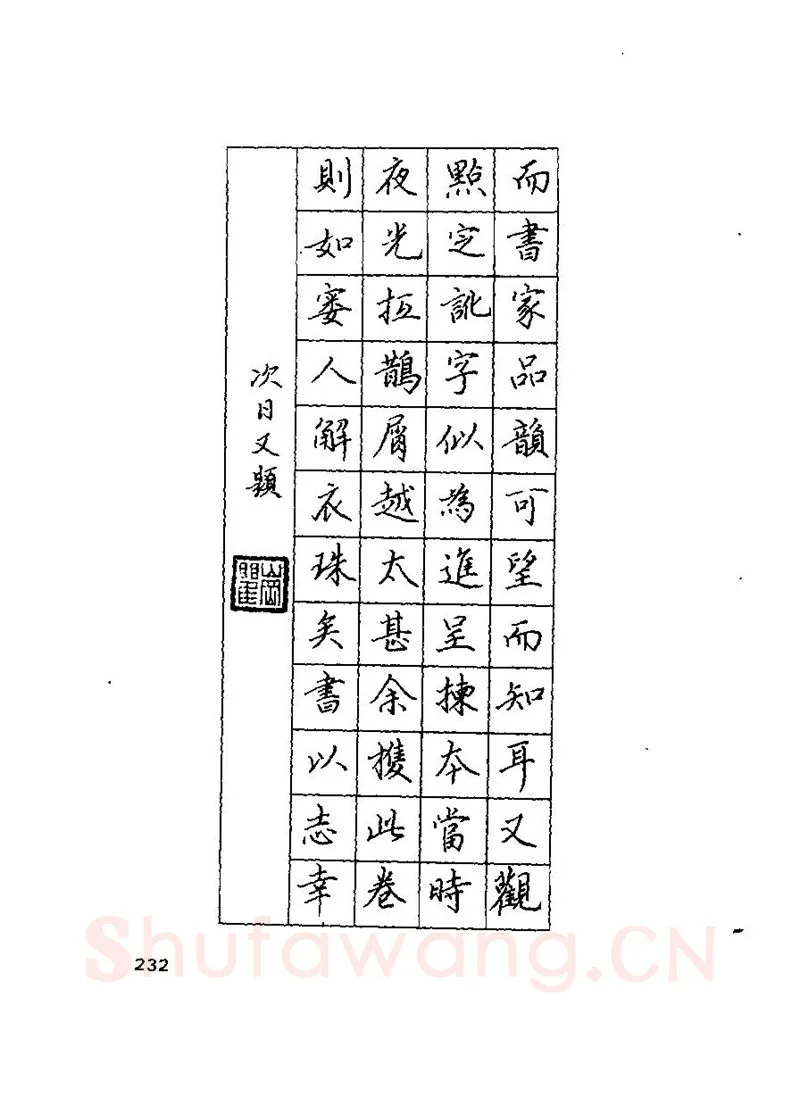 而書家品韻可望而知耳又觀
點定訛字似為進呈揀本當時
夜光抵鵲屑越太甚余攜此卷
則如寠人解衣珠矣書以志幸
次日又題
232
Shufawang.CN